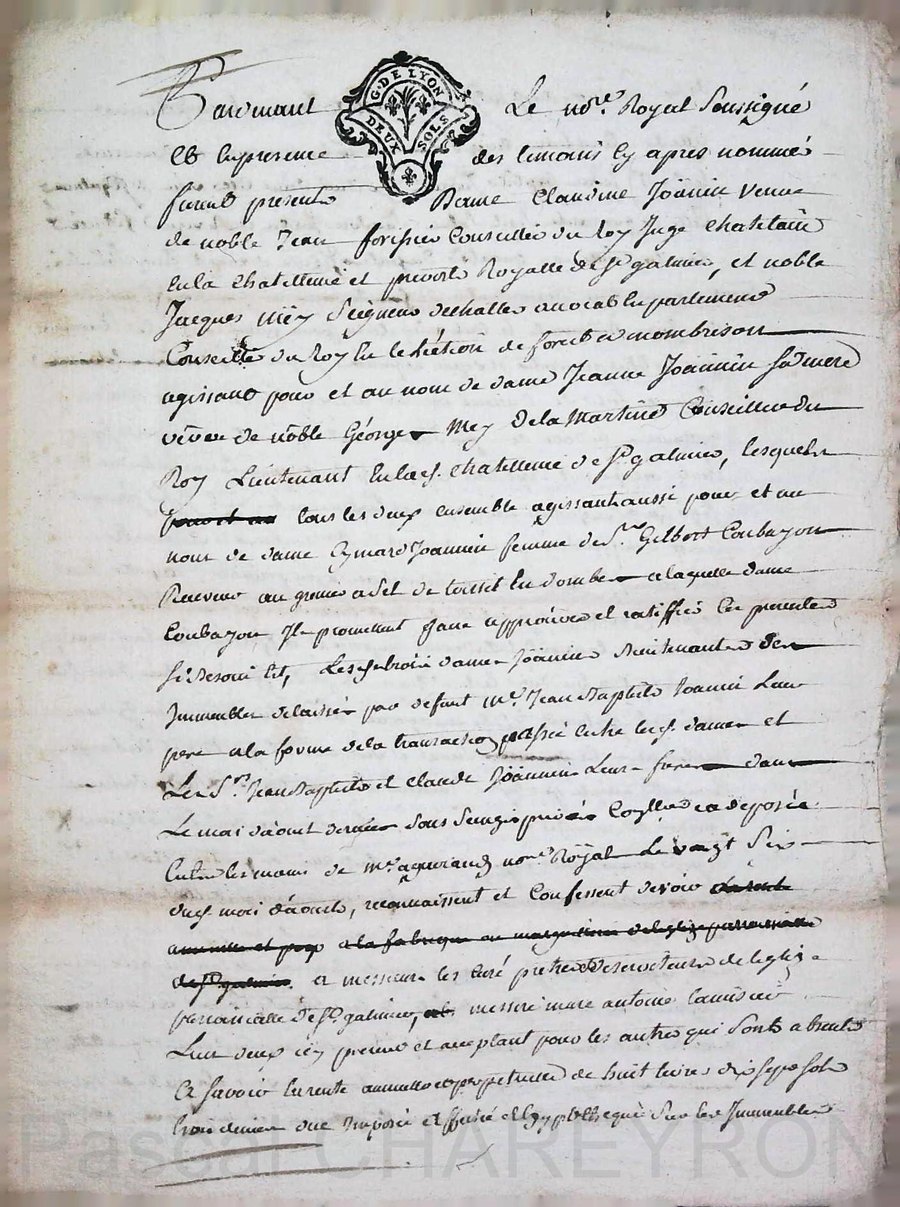 Pardevant Le no.re Royal Soussigné
G. DE LYON
DEUX SOLS
Et en presence des temoins cy apres nommés
furent presents Dame Claudine Joannin veuve
de noble Jean forissier Conseiller du Roy Juge Chatelain
En la Chatellenie et prevosté Royalle de St galmier, et noble
Jacques Mey Seigneur de Challes avocat En parlement
Conseiller du Roy En Lelection de forest a montbrison
agissant pour et au nom de dame Jeanne Joannin sa mere
veuve de noble George Mey De la Martine Conseiller du
Roy Lieutenant En lad. chatellenie de St galmier, lesquels
pour et au tous les deux ensemble agissant aussi pour et au
nom de dame Eymard Joannin femme de Sr. Gilbert Coubayon
Receveur au grenier a Sel de En dombes a laquelle dame
Coubayon Ils promettent faire approuver et ratiffier Ces presentes
Si besoin Est, Lesd. trois dames Joannin des
Immeubles delaissés par defunt Me. Jean Baptiste Joannin Leur
pere a la forme de la transaction passée Entre lesd. dames et
Les Srs. Jean Baptiste et Claude Joannin Leurs freres dans
Le mois daout dernier Sous Seings privés deposée
Entre les mains de Me. no.re Royal Le vingt Six
dud. mois daout, reconnaissent et Confessent devoir
annuelle et a la fabrique ou marguilliers de leglize parroissialle
de St galmier, a messieurs les Curé pretres Desserviteurs de leglize
parroissialle de St galmier, messire marc antoine
Lun deux icy present et acceptant pour les autres qui Sont absents
A Savoir la rente annuelle et perpetuelle de huit livres dix Sept Sols
trois deniers Imposée assise et hypothequée Sur les Immeubles
Pascal CHAREYRON